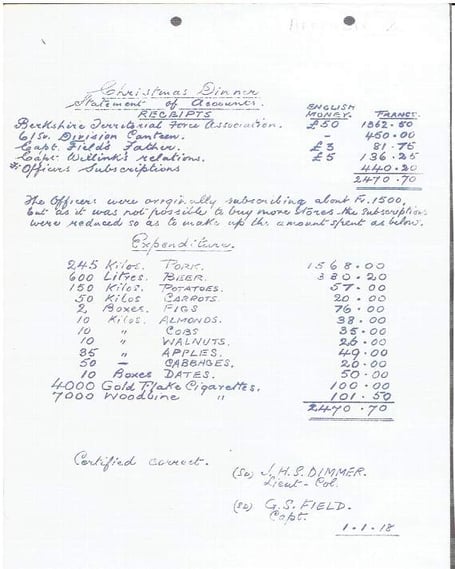 Christmas Dinner
Statement of Accounts.
RECEIPTS ENGLISH MONEY. FRANCS.
Berkshire Territorial Force Association. £50 1362.50
61st. Division Canteen. – 450.00
Capt. Field's Father. £3 81.75
Capt. Willink's relations. £5 136.25
Officers Subscriptions 440.20
2470.70
The Officers were originally subscribing about Fr. 1500,
but as it was not possible to buy more stores the subscriptions
were reduced so as to make up the amount spent as below.
Expenditure.
245 Kilos. PORK. 1568.00
600 Litres. BEER. 380.20
150 Kilos. POTATOES. 57.00
50 Kilos CARROTS. 20.00
2 Boxes. FIGS 76.00
10 Kilos. ALMONDS. 38.00
10 " COBS 35.00
10 " WALNUTS. 26.00
35 " APPLES. 49.00
50 – CABBAGES. 20.00
10 Boxes DATES. 50.00
4000 Gold Flake Cigarettes. 100.00
7000 Woodbine " 101.50
2470.70
Certified correct.
(SD) J.H.S. DIMMER.
Lieut-Col.
(SD) G.S. FIELD.
Capt.
1.1.18